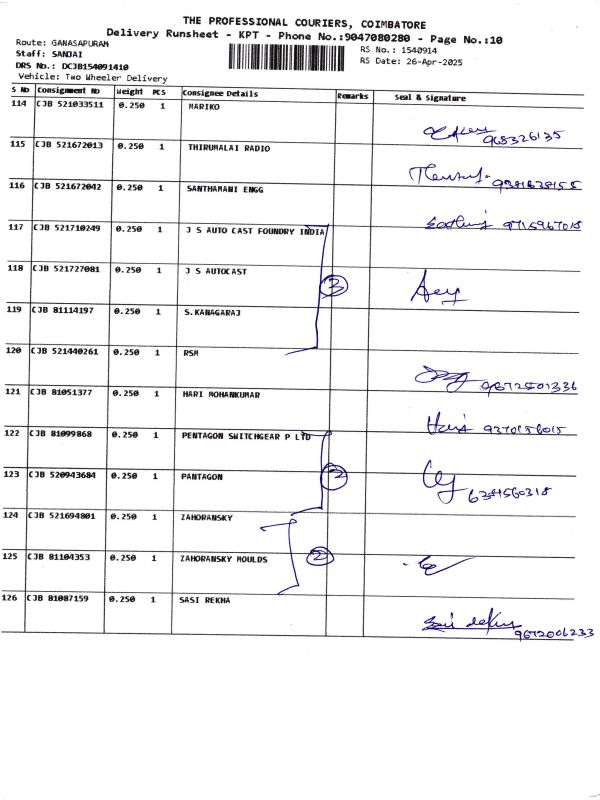 THE PROFESSIONAL COURIERS, COIMBATORE
Delivery Runsheet - KPT - Phone No.:9047080280 - Page No.:10
Route: GANASAPURAM
RS No.: 1540914
Staff: SANJAI
RS Date: 26-Apr-2025
DRS No.: DCJB154091410
Vehicle: Two Wheeler Delivery
S No Consignment No Weight PCS Consignee Details Remarks Seal & Signature
114 CJB 521033511 0.250 1 MARIKO
115 CJB 521672013 0.250 1 THIRUMALAI RADIO
116 CJB 521672042 0.250 1 SANTHAMANI ENGG
117 CJB 521710249 0.250 1 J S AUTO CAST FOUNDRY INDIA
118 CJB 521727081 0.250 1 J S AUTOCAST 3
119 CJB 81114197 0.250 1 S.KANAGARAJ
120 CJB 521440261 0.250 1 RSM
121 CJB 81051377 0.250 1 HARI MOHANKUMAR
122 CJB 81099868 0.250 1 PENTAGON SWITCHGEAR P LTD
123 CJB 520943684 0.250 1 PANTAGON 2
6381560318
124 CJB 521694801 0.250 1 ZAHORANSKY
125 CJB 81104353 0.250 1 ZAHORANSKY MOULDS 2
126 CJB 81087159 0.250 1 SASI REKHA
9672006233